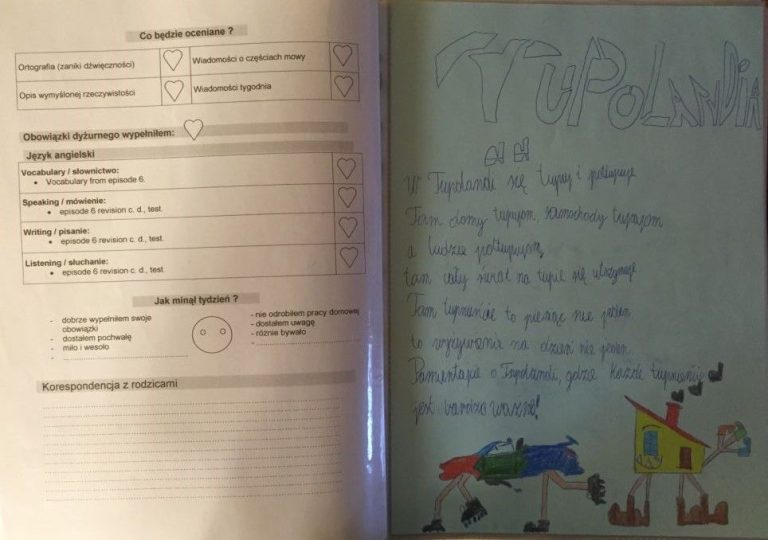 Co będzie oceniane ?
Ortografia (zaniki dźwięczności)
Wiadomości o częściach mowy
Opis wymyślonej rzeczywistości
Wiadomości tygodnia
Obowiązki dyżurnego wypełniłem:
Język angielski
Vocabulary / słownictwo:
• Vocabulary from episode 6.
Speaking / mówienie:
• episode 6 revision c. d., test.
Writing / pisanie:
• episode 6 revision c. d., test.
Listening / słuchanie:
• episode 6 revision c. d., test
Jak minął tydzień ?
- dobrze wypełniłem swoje
obowiązki
- dostałem pochwałę
- miło i wesoło
- nie odrobiłem pracy domowej
- dostałem uwagę
- różnie bywało
Korespondencja z rodzicami
TUPOLANDIA
W Tupolandi się tupuj i potupuje
Tam domy tupają, samochody tupają
a ludzie potupują,
tam cały świat na tupie się utrzymuje
Tam tupnięcie to pieniąc nie jeden
to na dzień nie jeden
Pamiętajcie o Tupolandi, gdzie każde tupnięcie
jest bardzo ważne!